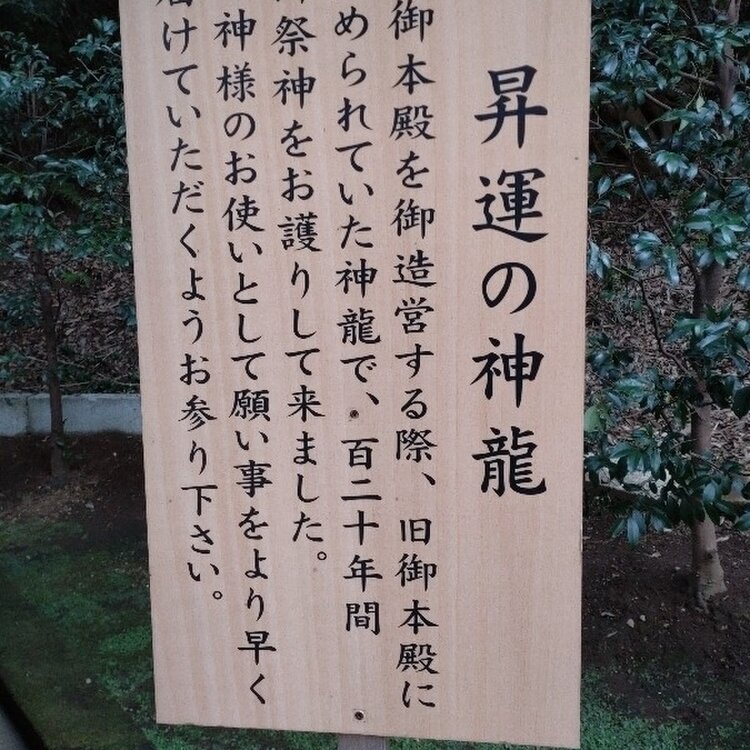 昇運の神龍
御本殿を御造営する際、旧御本殿に
められていた神龍で、百二十年間
祭神をお護りして来ました。
神様のお使いとして願い事をより早く
けていただくようお参り下さい。